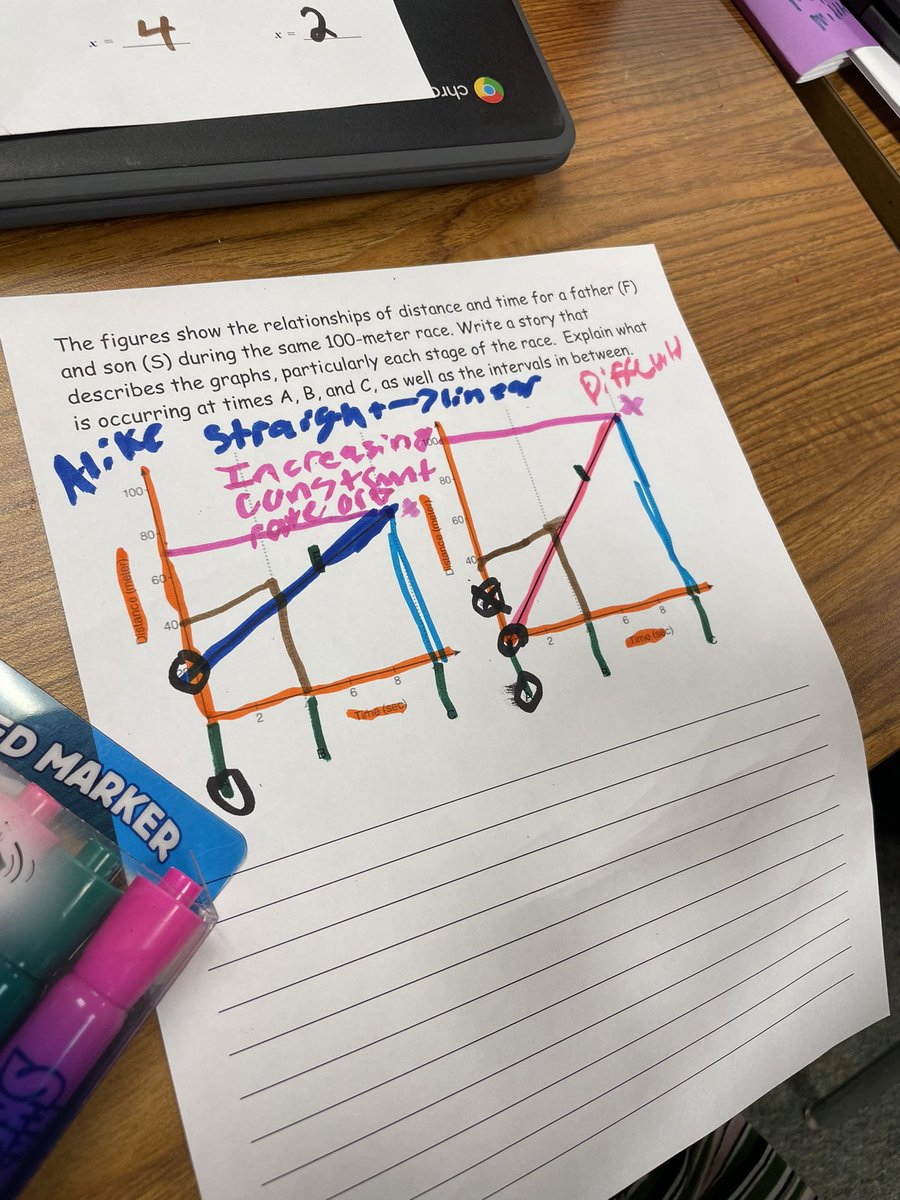 x = 4
x = 2
chro
The figures show the relationships of distance and time for a father (F)
and son (S) during the same 100-meter race. Write a story that
describes the graphs, particularly each stage of the race. Explain what
is occurring at times A, B, and C, as well as the intervals in between.
Alike
Straight→linear
Increasing
constant
rate of
x
100
80
60
40
Distance (meter)
2
6
8
Time (sec)
x
100
80
60
40
Distance (meter)
2
6
8
Time (sec)
ED MARKER